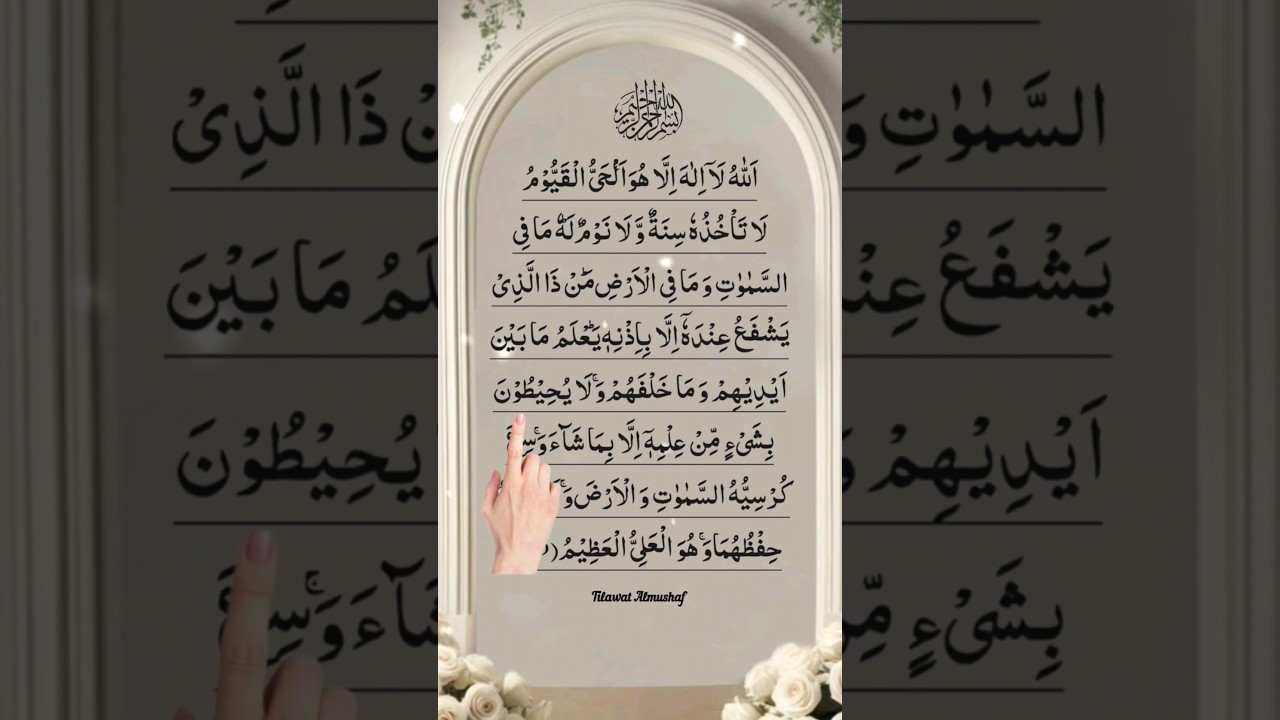 بسم الله الرحمن الرحيم
اَللّٰهُ لَاۤ اِلٰهَ اِلَّا هُوَ اَلْحَیُّ الْقَیُّوْمُ
لَا تَاْخُذُهٗ سِنَةٌ وَّ لَا نَوْمٌ لَهٗ مَا فِی
السَّمٰوٰتِ وَ مَا فِی الْاَرْضِ مَنْ ذَا الَّذِیْ
یَشْفَعُ عِنْدَهٗۤ اِلَّا بِاِذْنِهٖ یَعْلَمُ مَا بَیْنَ
اَیْدِیْهِمْ وَ مَا خَلْفَهُمْ وَ لَا یُحِیْطُوْنَ
بِشَیْءٍ مِّنْ عِلْمِهٖۤ اِلَّا بِمَا شَآءَ وَسِعَ
كُرْسِیُّهُ السَّمٰوٰتِ وَ الْاَرْضَ وَ
حِفْظُهُمَا وَ هُوَ الْعَلِیُّ الْعَظِیْمُ
Tilawat Almushaf